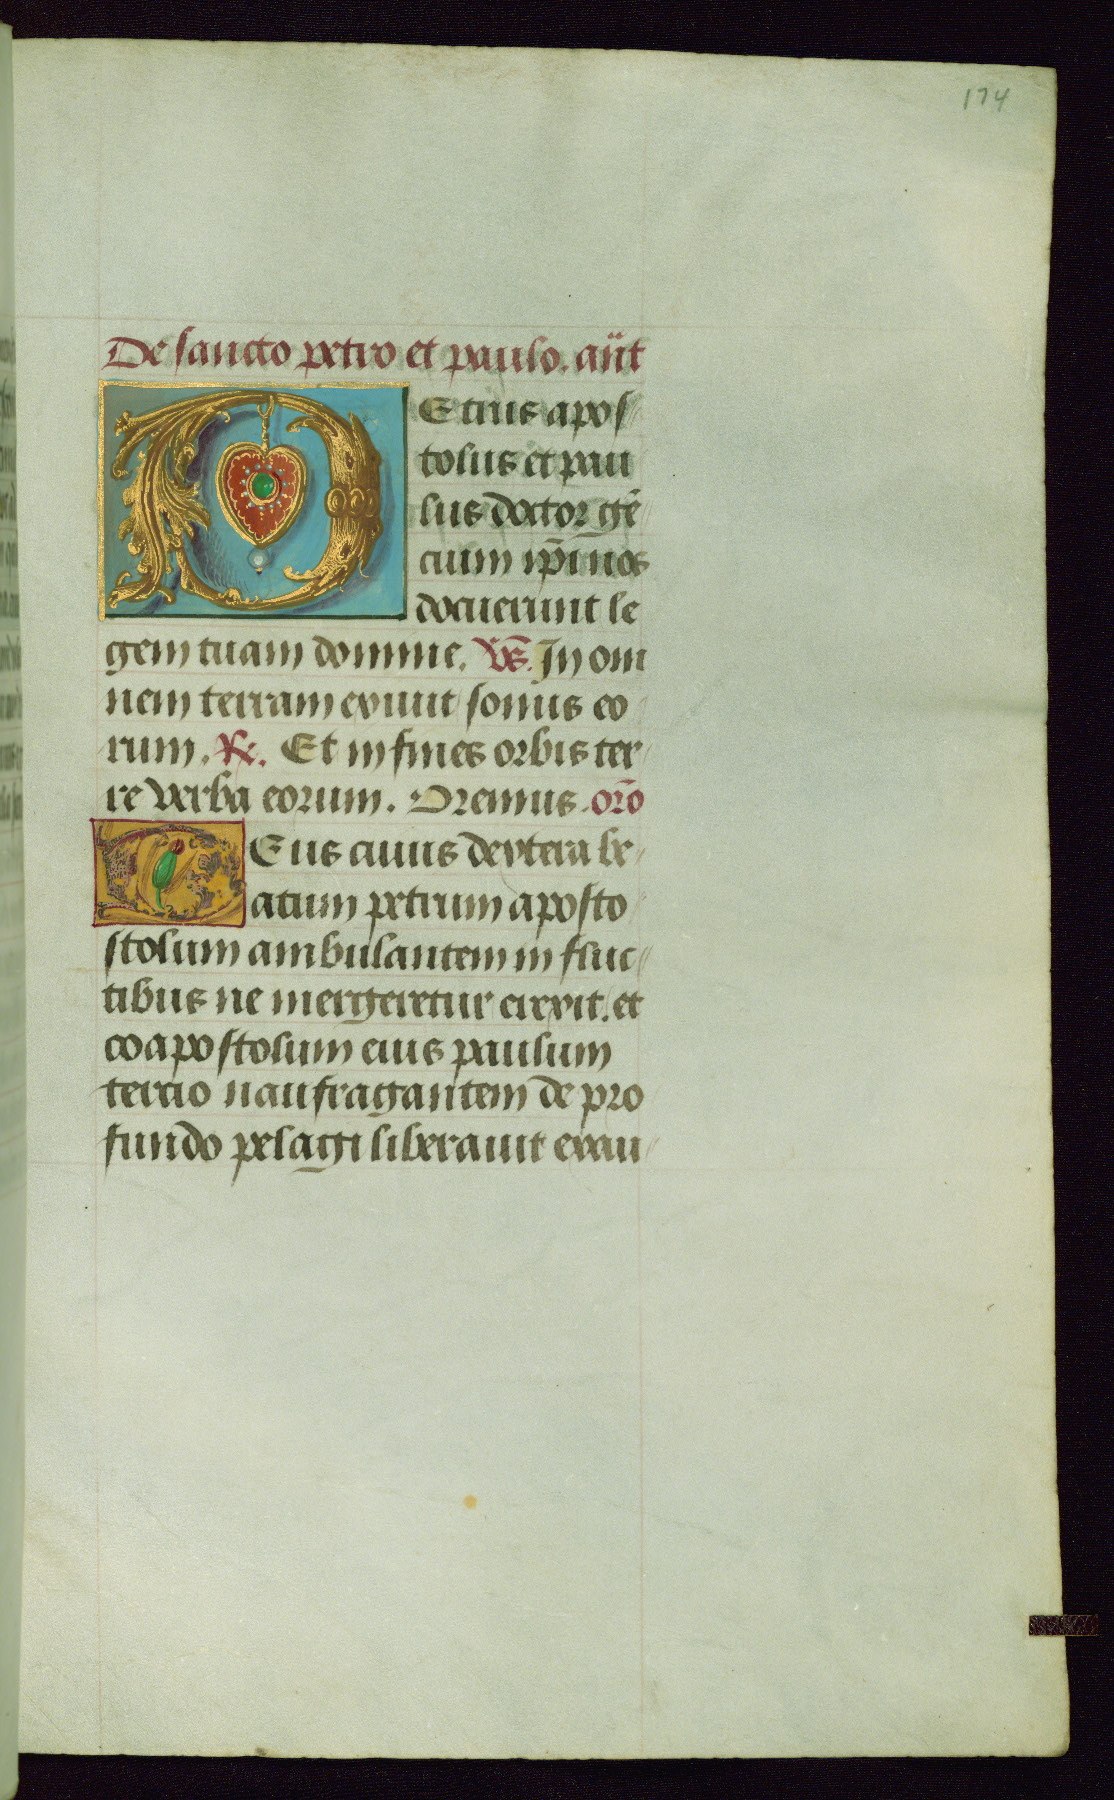 174
De sancto petro et paulo. añt
PEtrus apos
tolus et pau
lus doctor gē
cium ip̄i nos
docuerunt le
gem tuam domine. V̄s. In om
nem terram exiuit sonus eo
rum. R. Et in fines orbis ter
re verba eorum. Oremus. orō
DEus cuius dextera be
atum petrum aposto
stolum ambulantem in fluc
tibus ne mergeretur erexit. et
coapostolum eius paulum
tercio naufragantem de pro
fundo pelagi liberauit exau